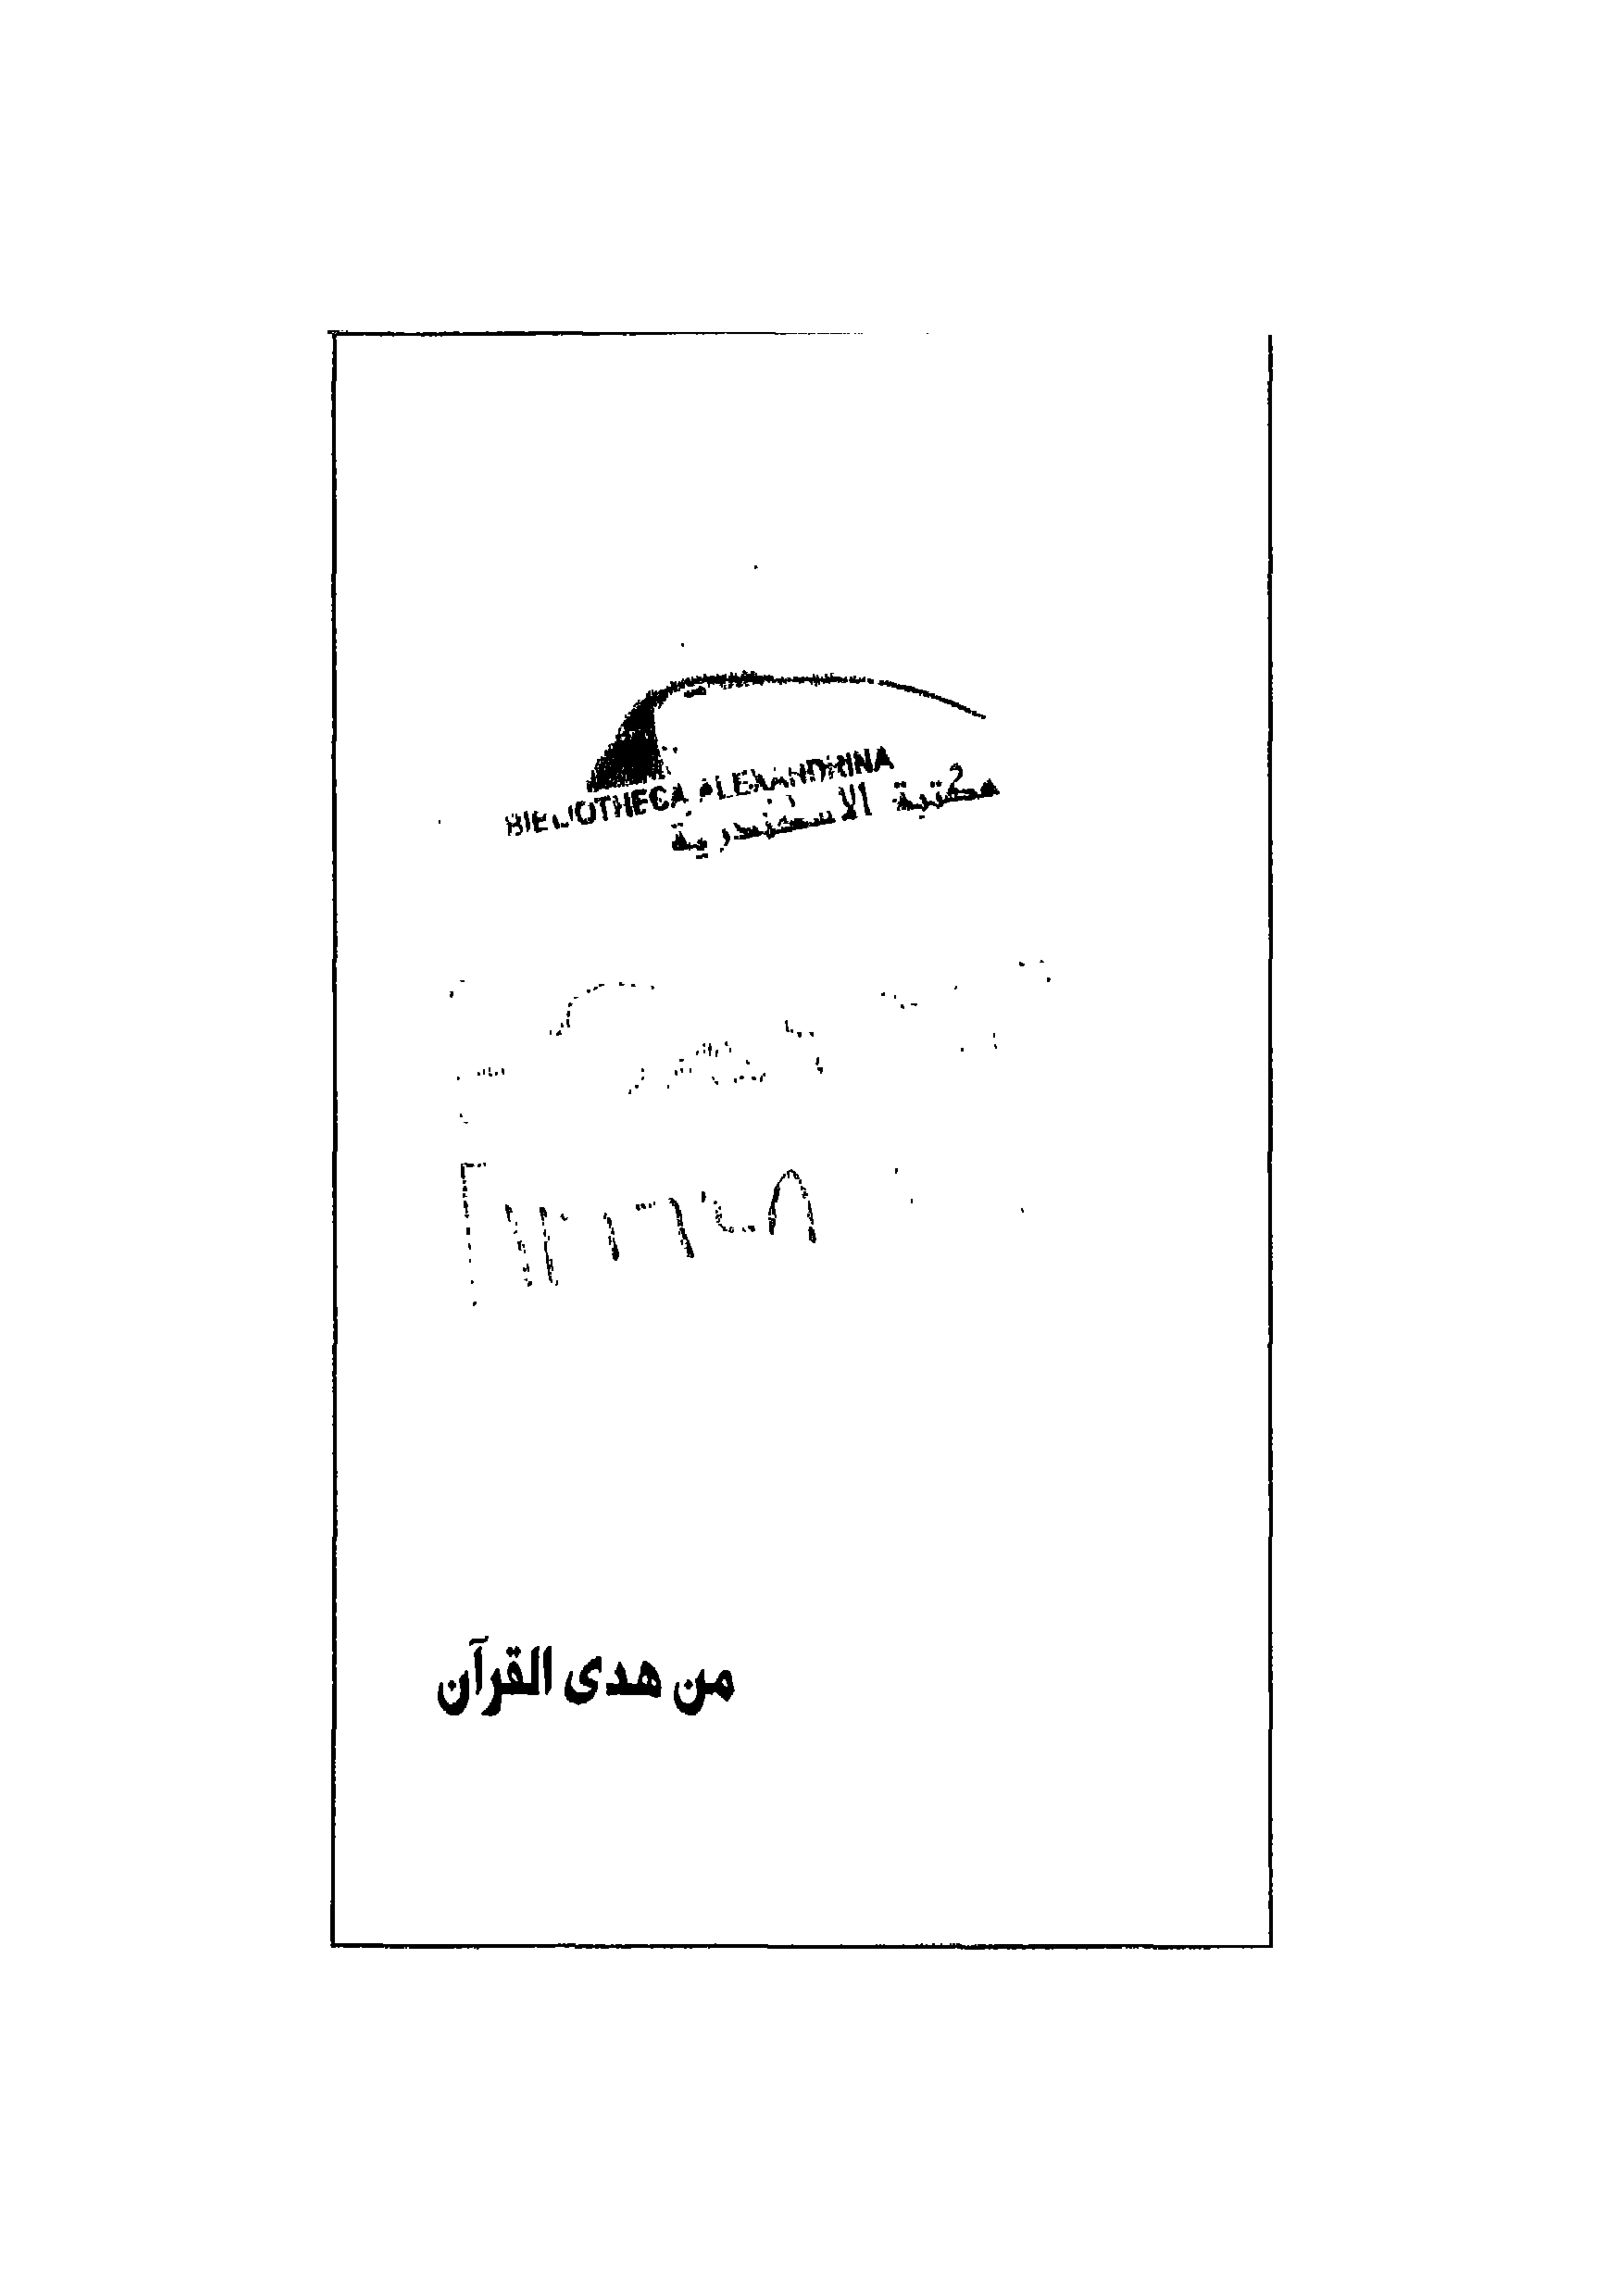 BIBLIOTHECA ALEXANDRINA
مكتبة الاسكندرية
من هدى القرآن